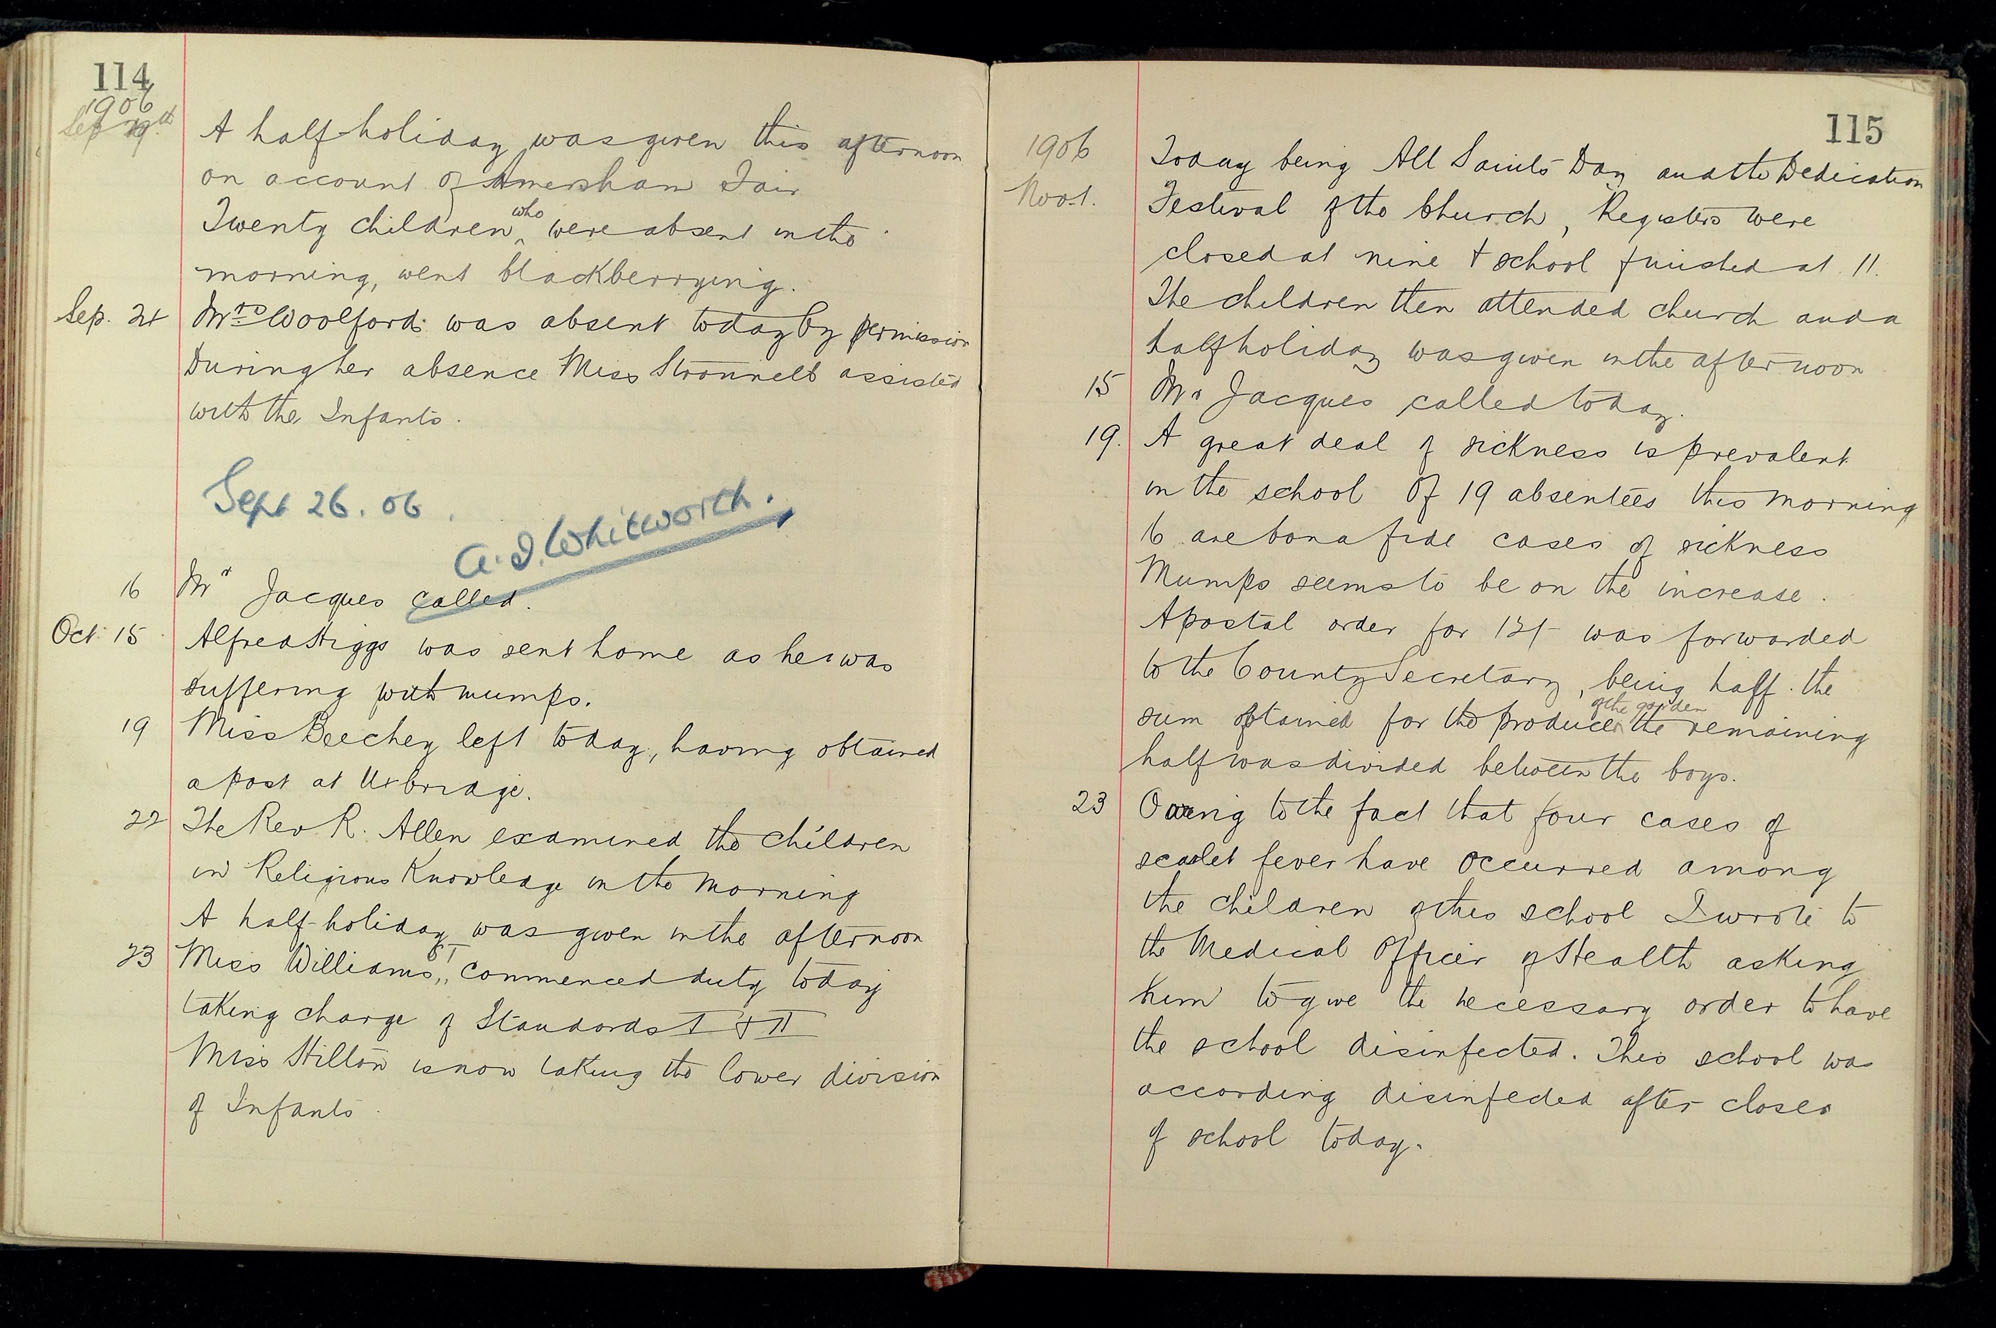 114
1906
Sep 19th A half-holiday was given this afternoon
on account of Amersham Fair
Twenty children who were absent in the
morning, went blackberrying.
Sep. 21 Mrs Woolford was absent today by permission
During her absence Miss assisted
with the Infants.
Sept 26. 06.
A. I. Whitworth.
16 Mr Jacques called.
Oct. 15 Alfred Higgs was sent home as he was
suffering with mumps.
19 Miss Beechey left today, having obtained
a post at Uxbridge.
22 The Rev R. Allen examined the children
in Religious Knowledge in the morning
A half-holiday was given in the afternoon
23 Miss Williams, commenced duty today
taking charge of Standards I & II
Miss Hilton is now taking the lower division
of Infants.
115
1906
Nov. 1. Today being All Saints Day and the Dedication
Festival of the Church, Registers were
closed at nine & school finished at 11.
The children then attended church and a
half holiday was given in the afternoon
15 Mr Jacques called today.
19. A great deal of sickness is prevalent
in the school Of 19 absentees this morning
16 are bona fide cases of sickness
Mumps seems to be on the increase.
A postal order for was forwarded
to the County Secretary, being half the
sum obtained for the produce of the garden the remaining
half was divided between the boys.
23 Owing to the fact that four cases of
scarlet fever have occurred among
the children of this school I wrote to
the Medical Officer of Health asking
him to give the necessary order to have
the school disinfected. This school was
according disinfected after close
of school today.